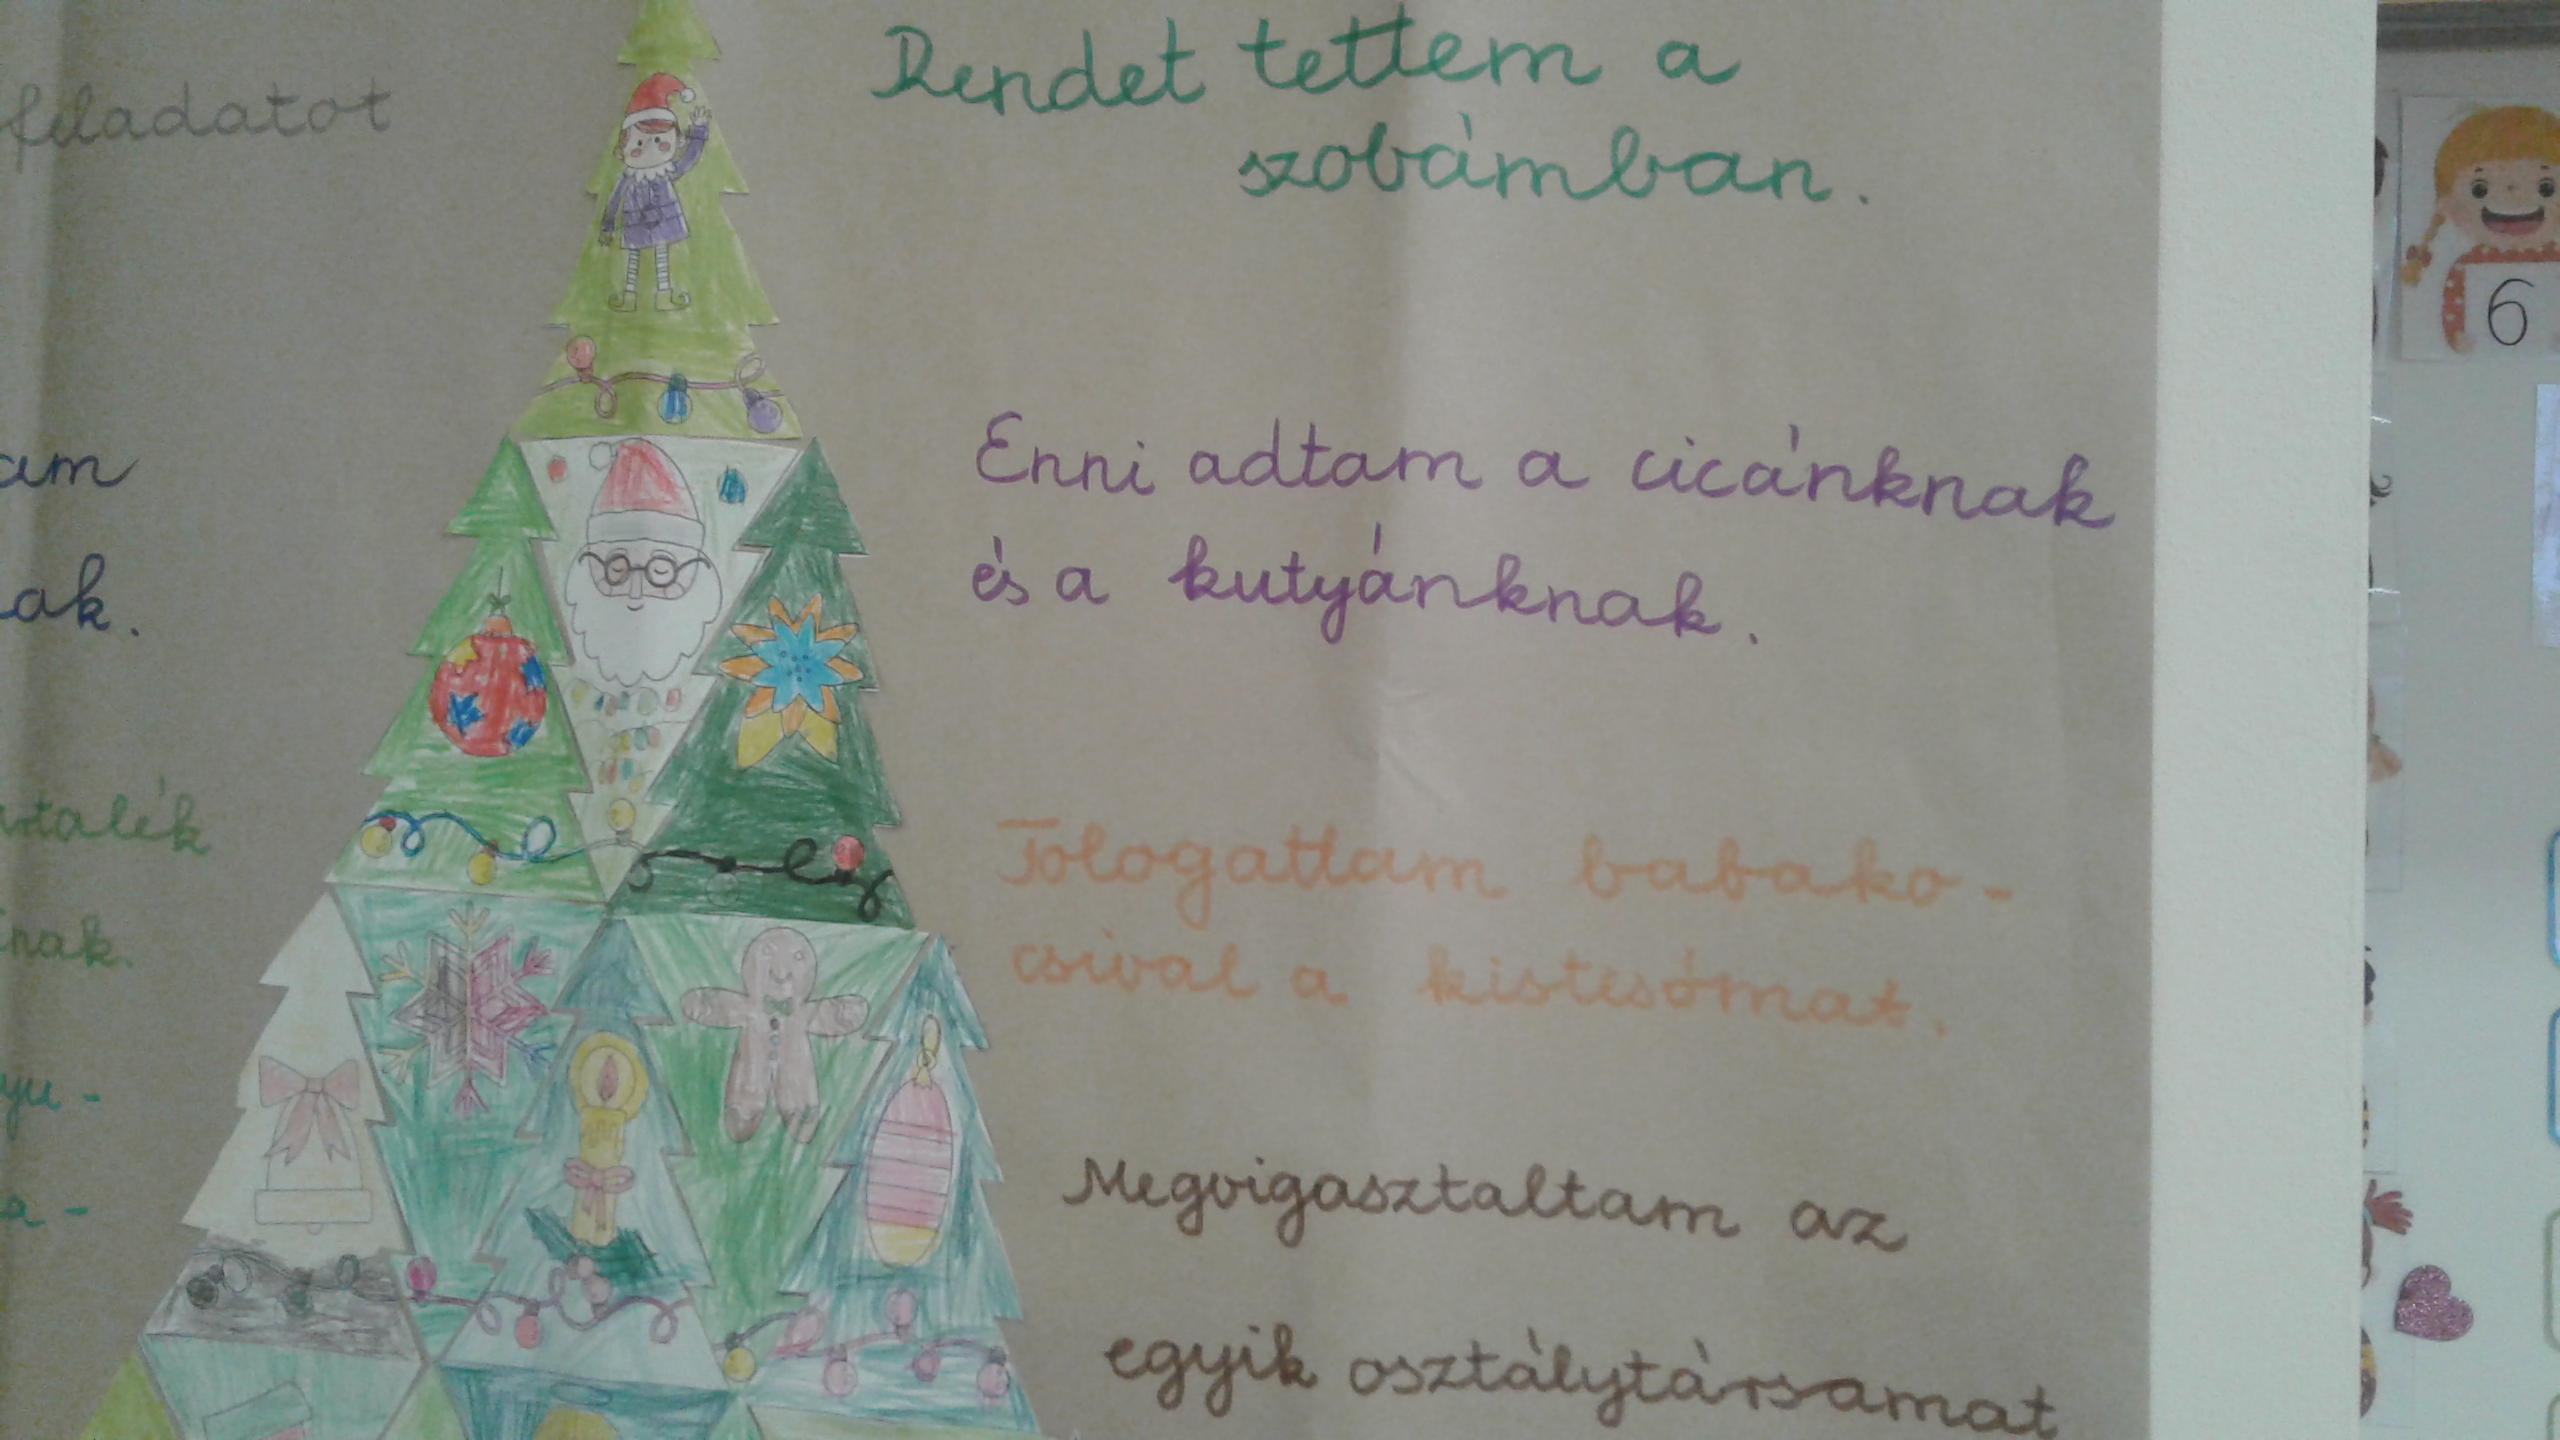 feladatot
Rendet tettem a
szobámban.
Enni adtam a cicánknak
és a kutyánknak.
Tologattam babako-
csival a kistesómat.
Megvigasztaltam az
egyik osztálytársamat
6